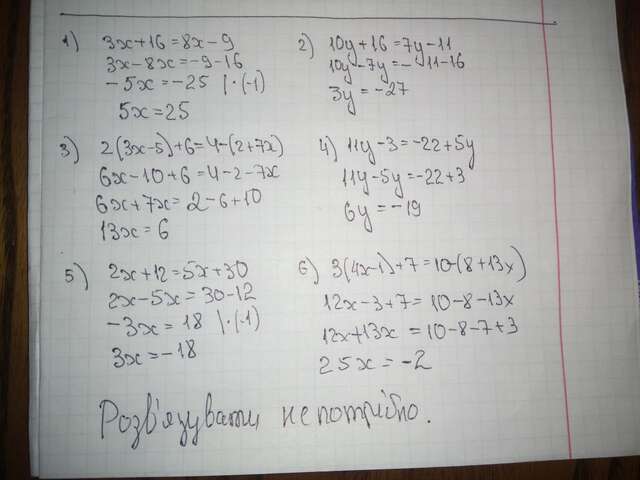 1) 3x+16=8x-9
3x-8x=-9-16
-5x=-25 |·(-1)
5x=25
2) 10y+16=7y-11
10y-7y=-11-16
3y=-27
3) 2(3x-5)+6=4-(2+7x)
6x-10+6=4-2-7x
6x+7x=2-6+10
13x=6
4) 11y-3=-22+5y
11y-5y=-22+3
6y=-19
5) 2x+12=5x+30
2x-5x=30-12
-3x=18 |·(-1)
3x=-18
6) 3(4x-1)+7=10-(8+13x)
12x-3+7=10-8-13x
12x+13x=10-8-7+3
25x=-2
Розв'язувати не потрібно.